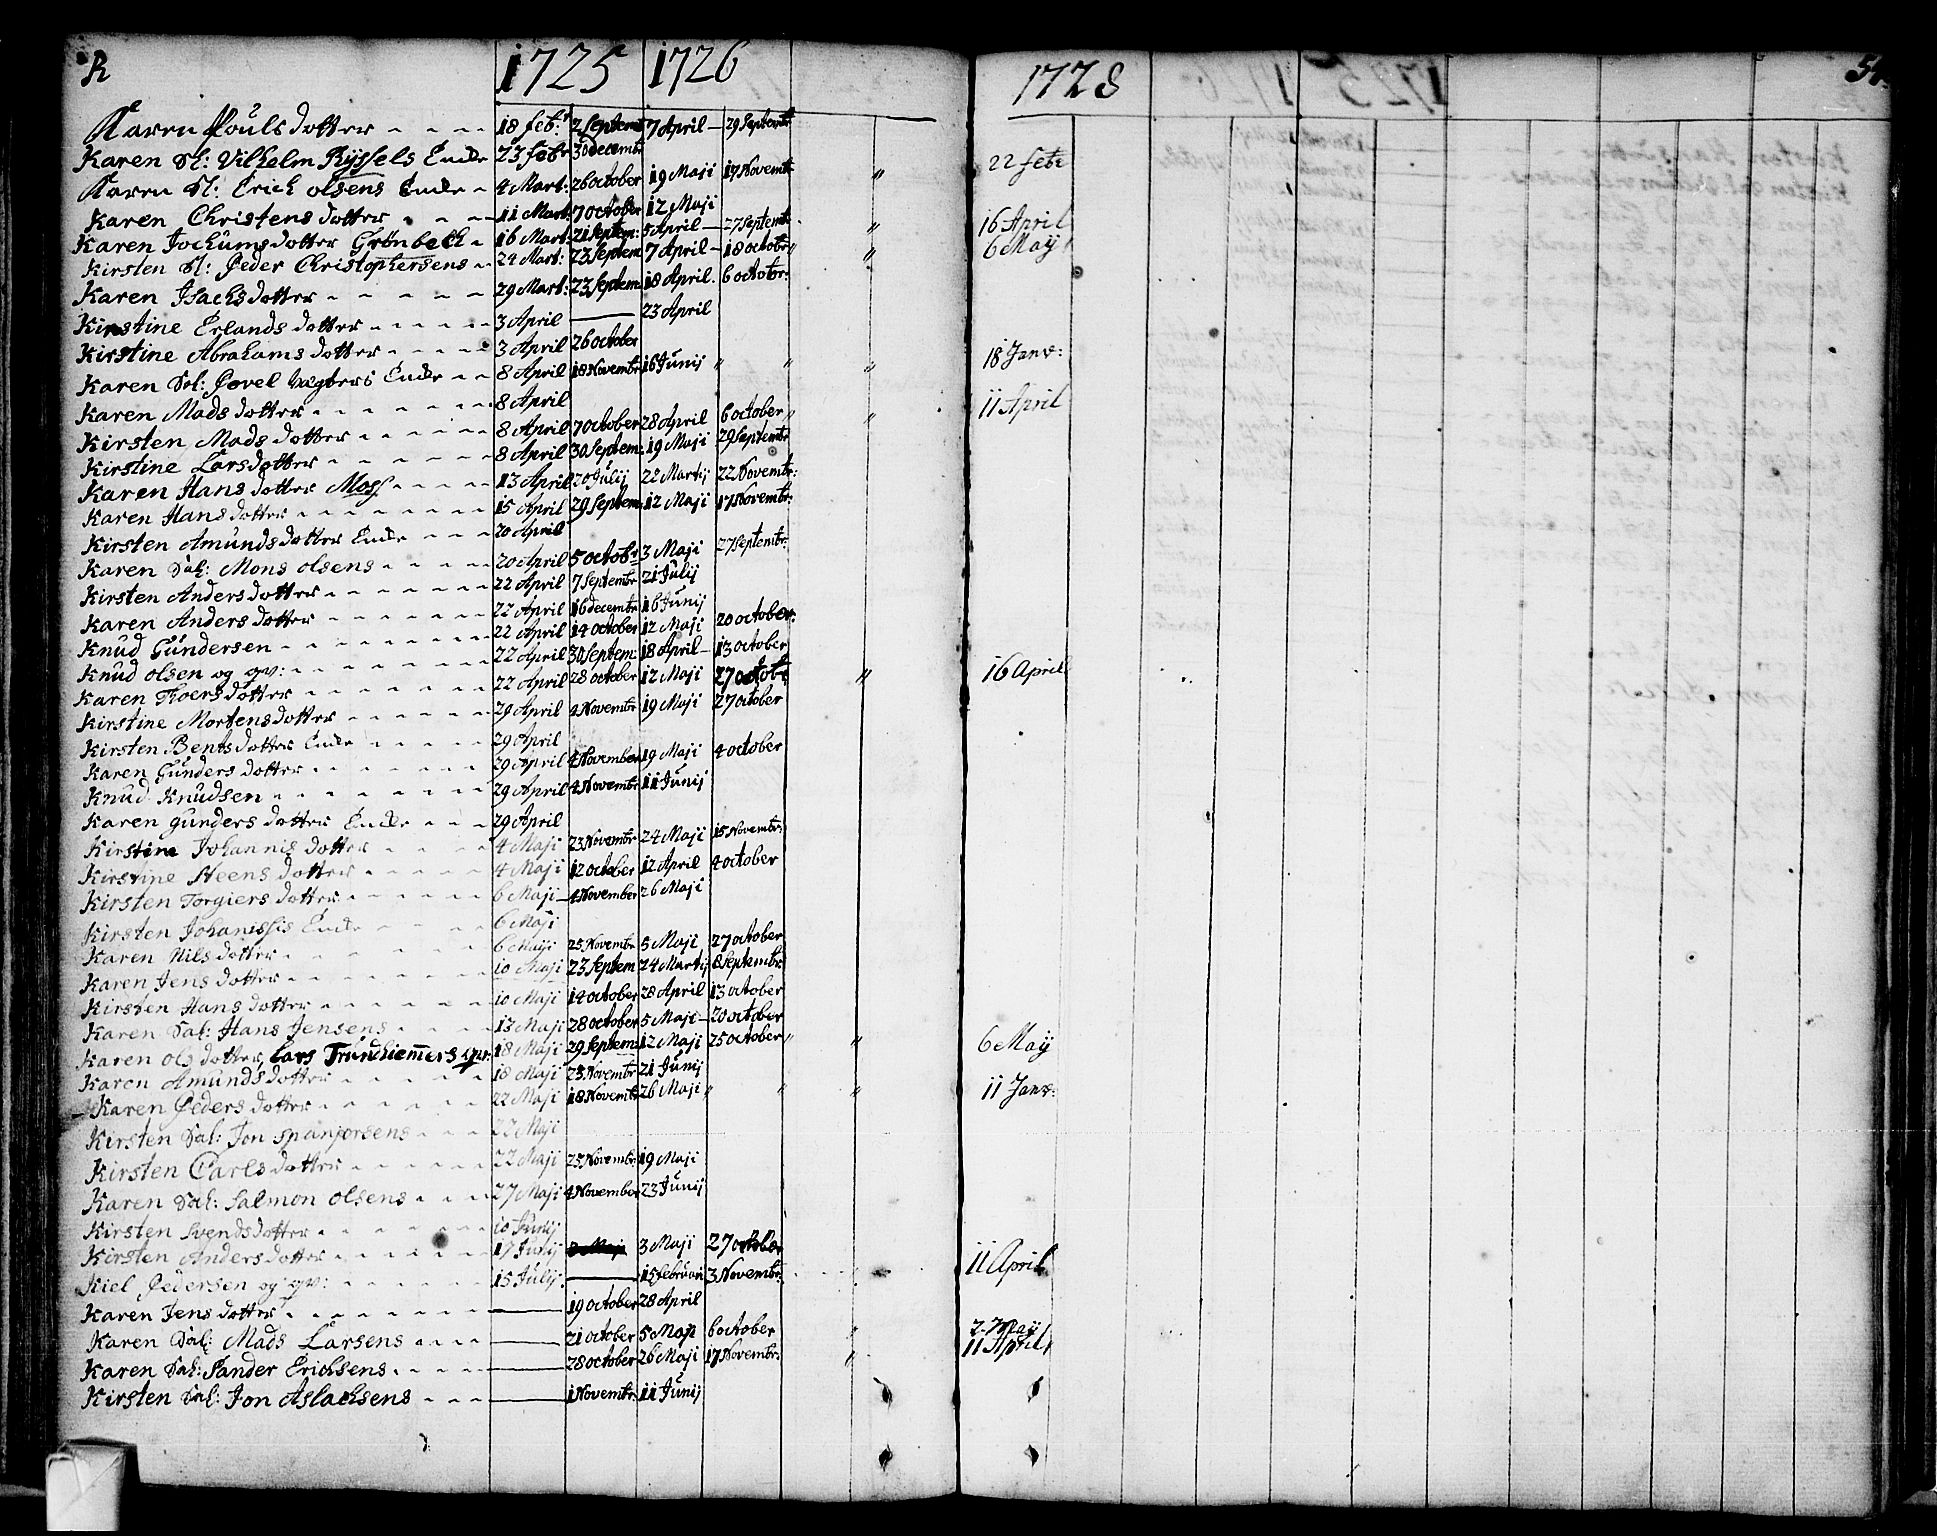 K 1725 1726 1728 54.
Karen Pouls dotter - - - 18 feb: 2 Septemb 7 April - 29 Septembr
Karen Sl: Vilhelm Ryssels Encke 23 febr 30 decembr 22 febr
Karen Sl: Erich Olsens Encke - 4 Mart: 26 october 19 Maji 17 Novemb: "
Karen Christens dotter - - - 11 Mart: 7 October 12 Maji
Karen Jochums dotter Grönbech - 16 Mart: 21 Septem: 5 April - 27 Septemb: " 16 April
Kirsten Sl: Peder Christophersens - - 24 Mart: 23 Septem 7 April - 18 octobr " " 6 Maij
Karen Isachs dotter - - - - - 29 Mart: 23 Septem: 18 April. 6 octobr:
Kirstine Erlands dotter - - - - - 3 April — 23 April
Kirstine Abrahams dotter - - - - 3 April 26 october
Karen Sal: Povel Vægters Encke - - 8 April 18 Novembr 16 Junij " " " 18 Janv:
Karen Mads dotter - - - - - - 8 April 11 April
Kirsten Mads dotter - - - - - 8 April 7 october 28 April 6 october " "
Kirstine Lars dotter - - - - - - 8 April 30 Septem: 19 Maji 29 Septembr
Karen Hans dotter Moss - - - - 13 April 20 Julij 22 Martij 22 Novembr:
Karen Hans dotter - - - - - - - 15 April 29 Septem: 12 Maji 17 Novembr:
Kirsten Amunds dotter Encke - - - 20 April
Karen Sal: Mons Olsens - - - - - 20 April 5 octobr 3 Maji 27 Septembr:
Kirsten Anders dotter - - - - - - 22 April 7 Septembr 21 Julij
Karen Anders dotter - - - - - - 22 April 16 decembr 16 Junij
Knud Gundersen - - - - - - - 22 April 14 october 12 Maji 20 october:
Knud Olsen og qv: - - - - - - - 22 April 30 Septem: 18 April - 13 october
Karen Thoers dotter - - - - - - 22 April 28 october 12 Maji 27 octobr " 16 April
Kirstine Mortens dotter - - - - - 29 April 4 Novembr 19 Maji 27 october
Kirsten Bents dotter Encke - - - - 29 April
Karen Gunders dotter - - - - - - 29 April 4 November 19 Maji 4 october
Knud Knudsen - - - - - - - 29 April 4 Novembr 11 Junij
Karen gunders dotter Encke - - - 29 April
Kirstine Johannis dotter - - - - 4 Maji 23 Novembr 24 Maji 15 Novembr:
Kirstine Steens dotter - - - - - 4 Maji 12 october 12 April 4 october
Kirsten Torgiers dotter - - - - - 6 Maji - 4 November 26 Maji
Kirsten Johanissis Encke - - - - 6 Maji
Karen Nils dotter - - - - - - 6 Maji 25 Novembr 5 Maji 27 october
Karen Jens dotter - - - - - - 10 Maji 23 Septem 24 Martij 8 Septembr
Kirsten Hans dotter - - - - - - 10 Maji 14 october 28 April 13 october
Karen Sal: Hans Jensens - - - - 13 Maji 28 october 5 Maji - 20 october
Karen Ols dotter, Lars Trundhiemers qv: 18 Maji 29 Septem: 12 Maji 25 october " " 6 Maij
Karen Amunds dotter - - - - - 18 Maji 23 Novembr 21 Junij
Karen Peders dotter - - - - - - 22 Maji 18 Novembr 26 Maji " " " 11 Janv:
Kirsten Sal: Jon Spanjorsens - - - 22 Maji
Kirsten Carls dotter - - - - - - 22 Maji 25 Novembr: 19 Maji
Karen Sal: Salmon Olsens - - - - 27 Maji 4 November 23 Junij
Kirsten Svends dotter - - - - - - 10 Junij
Kirsten Anders dotter - - - - - - 17 Junij 3 Maji 3 Maji 27 october
Kiel Pedersen og qv: - - - - - - 15 Julij. — 15 februari 3 Novembr: 11 April
Karen Jens dotter - - - - - - — 19 october 28 April
Karen Sal: Mads Larsens - - - - — 21 october 5 Maji 6 october " 2. Maij
Karen Sal: Sander Erichsens - - - - — 28 october 26 Maji 17 Novembr: " 11 April
Kirsten Sal: Jon Aslachsens - - - — 1 Novembr: 11 Junij